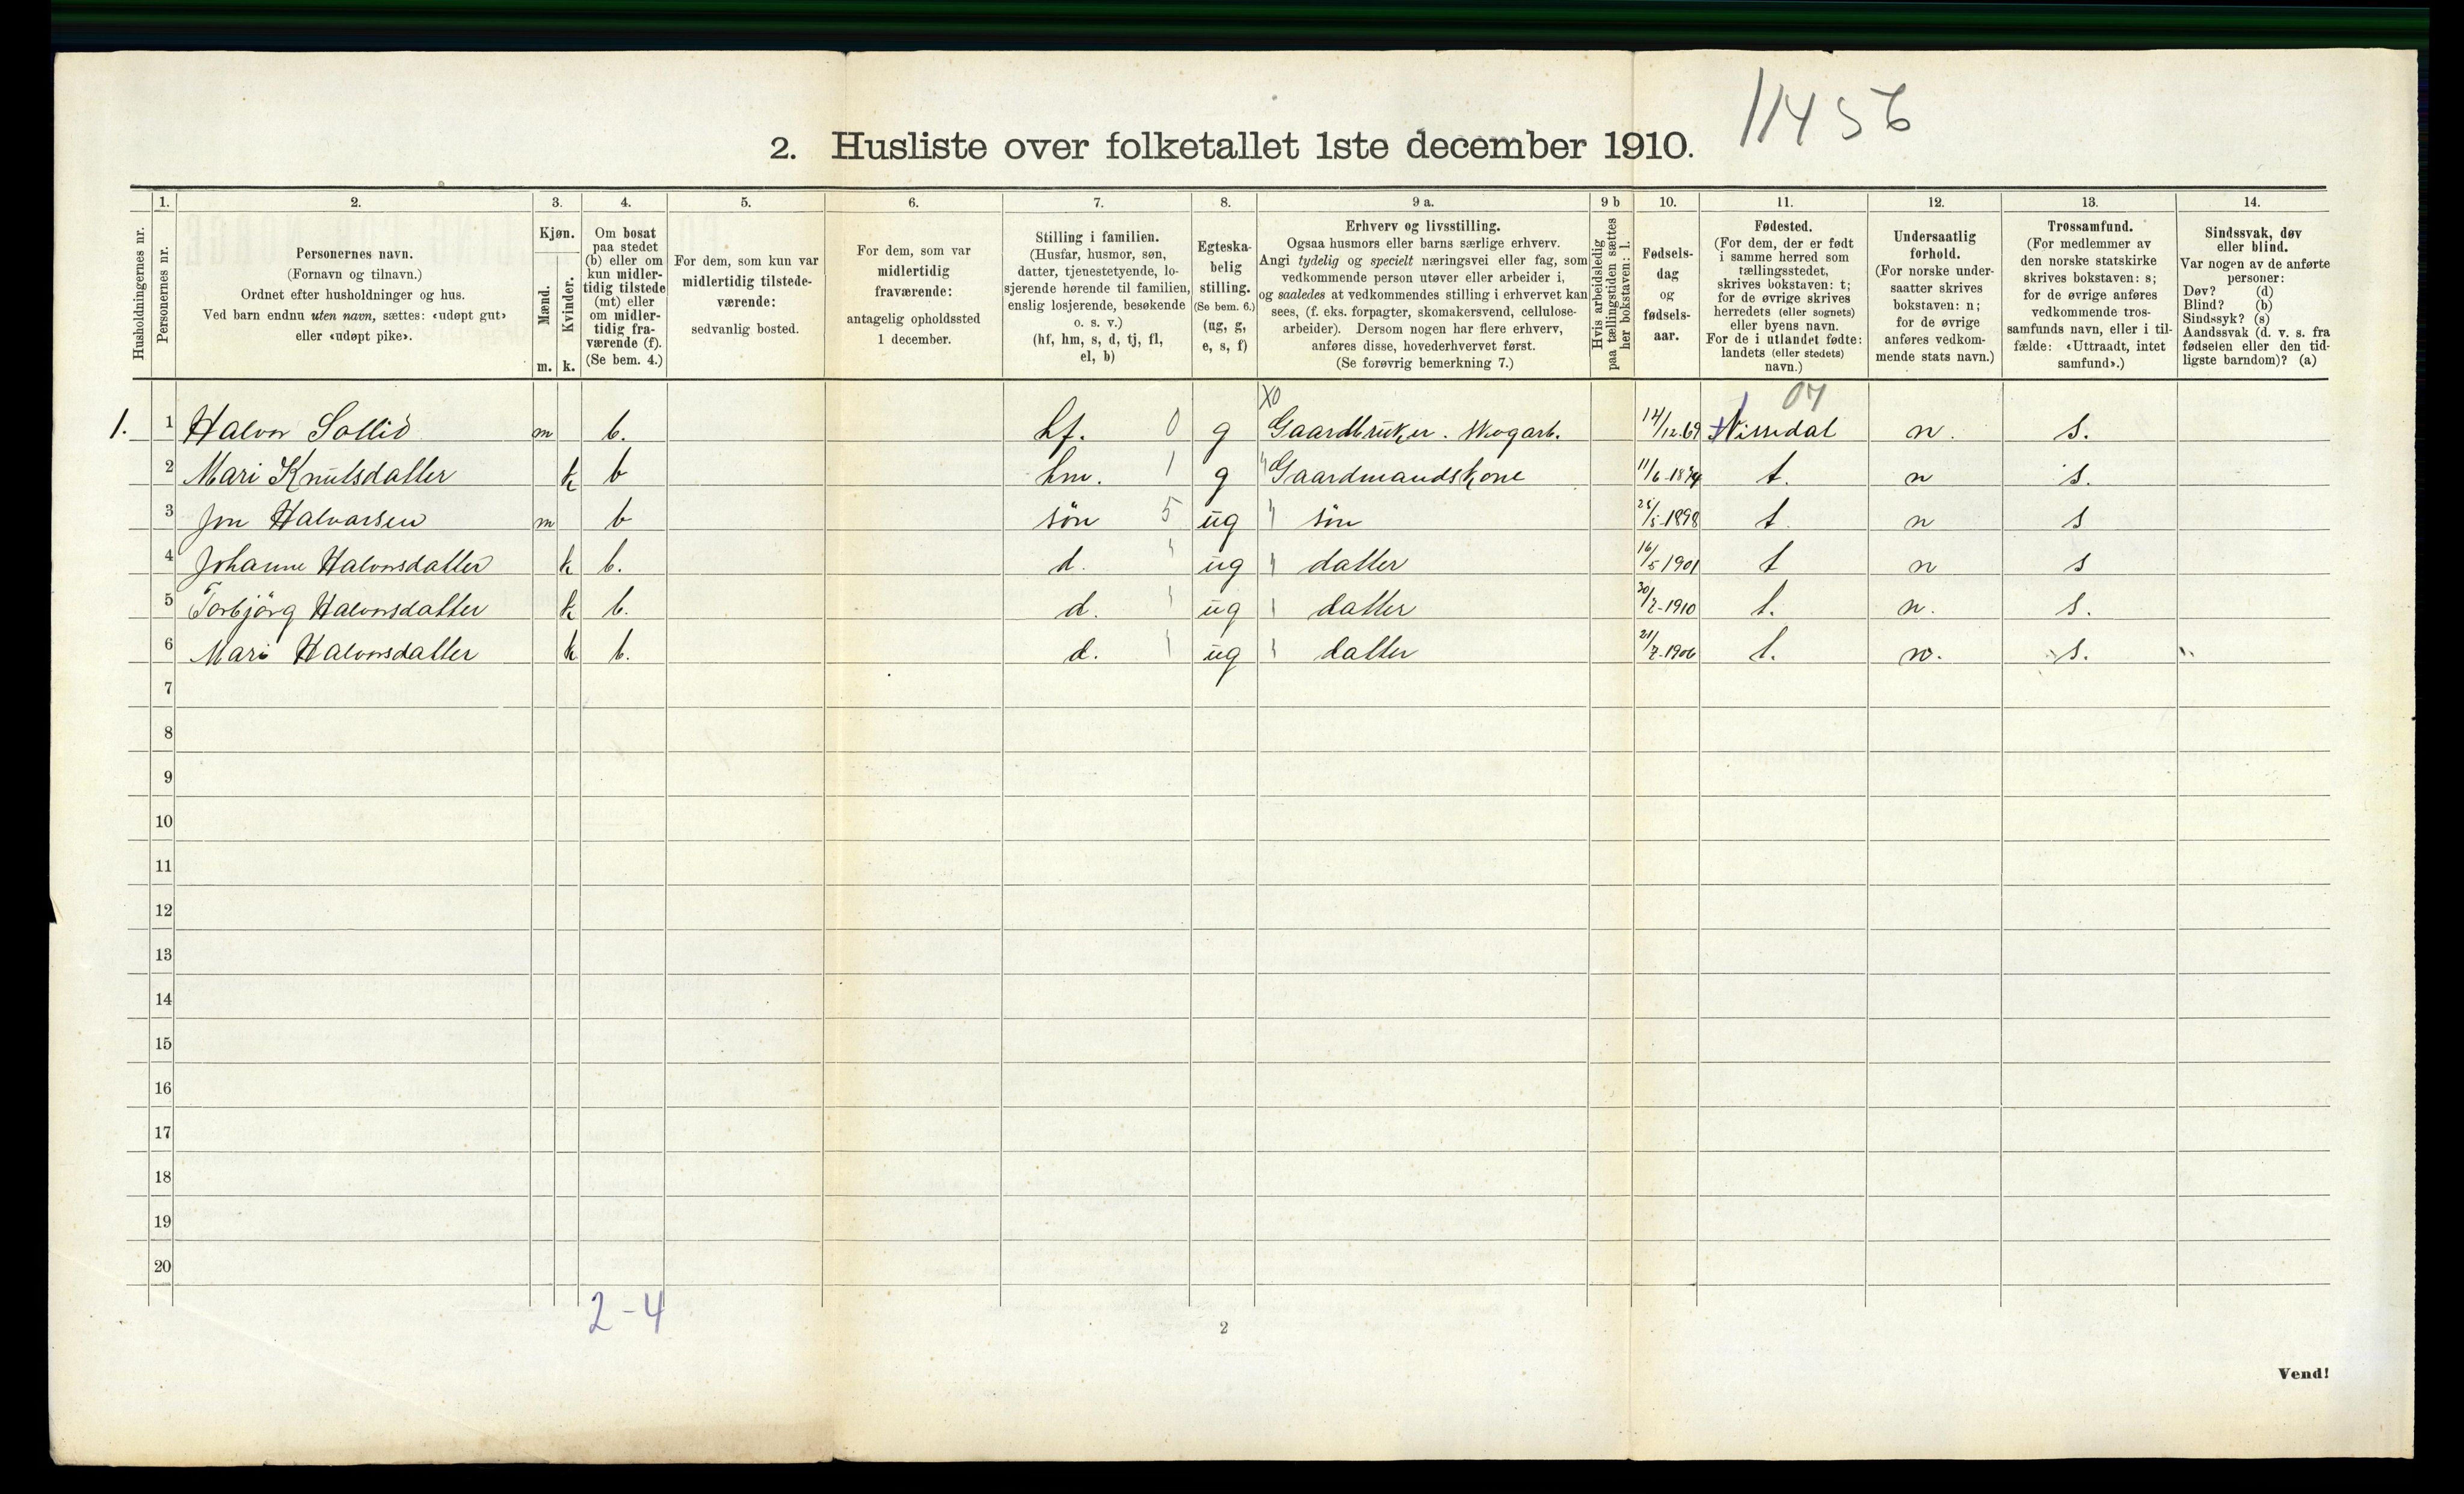 11456
2. Husliste over folketallet 1ste december 1910.
Husholdningernes nr.
1. Personernes nr.
2. Personernes navn.
(Fornavn og tilnavn.)
Ordnet efter husholdninger og hus.
Ved barn endnu uten navn, sættes: «udøpt gut»
eller «udøpt pike».
3. Kjøn.
Mænd. m.
Kvinder. k.
4. Om bosat
paa stedet
(b) eller om
kun midler-
tidig tilstede
(mt) eller
om midler-
tidig fra-
værende (f).
(Se bem. 4.)
5. For dem, som kun var
midlertidig tilstede-
værende:
sedvanlig bosted.
6. For dem, som var
midlertidig
fraværende:
antagelig opholdssted
1 december.
7. Stilling i familien.
(Husfar, husmor, søn,
datter, tjenestetyende, lo-
sjerende hørende til familien,
enslig losjerende, besøkende
o. s. v.)
(hf, hm, s, d, tj, fl,
el, b)
8. Egteska-
belig
stilling.
(Se bem. 6.)
(ug, g,
e, s, f)
9 a. Erhverv og livsstilling.
Ogsaa husmors eller barns særlige erhverv.
Angi tydelig og specielt næringsvei eller fag, som
vedkommende person utøver eller arbeider i,
og saaledes at vedkommendes stilling i erhvervet kan
sees, (f. eks. forpagter, skomakersvend, cellulose-
arbeider). Dersom nogen har flere erhverv,
anføres disse, hovederhvervet først.
(Se forøvrig bemerkning 7.)
9 b Hvis arbeidsledig
paa tællingstiden sættes
her bokstaven: l.
10. Fødsels-
dag
og
fødsels-
aar.
11. Fødested.
(For dem, der er født
i samme herred som
tællingsstedet,
skrives bokstaven: t;
for de øvrige skrives
herredets (eller sognets)
eller byens navn.
For de i utlandet fødte:
landets (eller stedets)
navn.)
12. Undersaatlig
forhold.
(For norske under-
saatter skrives
bokstaven: n;
for de øvrige
anføres vedkom-
mende stats navn.)
13. Trossamfund.
(For medlemmer av
den norske statskirke
skrives bokstaven: s;
for de øvrige anføres
vedkommende tros-
samfunds navn, eller i til-
fælde: «Uttraadt, intet
samfund».)
14. Sindssvak, døv
eller blind.
Var nogen av de anførte
personer:
Døv? (d)
Blind? (b)
Sindssyk? (s)
Aandssvak (d. v. s. fra
fødselen eller den tid-
ligste barndom)? (a)
X0 07
1. 1 Halvor Sollid m b. hf. 0 g Gaardbruker. Skogarb. 14/12.69 Nissedal n. s.
2 Mari Knutsdatter k b hm. 1 g Gaardmandskone 11/6-1874 t. n s.
3 Jon Halvorsen m b søn 5 ug søn 25/5-1898 t n s
4 Johanne Halvorsdatter k b. d. ug datter 16/5 1901 t n s
5 Torbjörg Halvorsdatter k b. d. ug datter 30/7-1910 t. n. s.
6 Mari Halvorsdatter k b. d. ug datter 21/7-1906 t. n. s.
7
8
9
10
11
12
13
14
15
16
17
18
19
20
2-4
2
Vend!